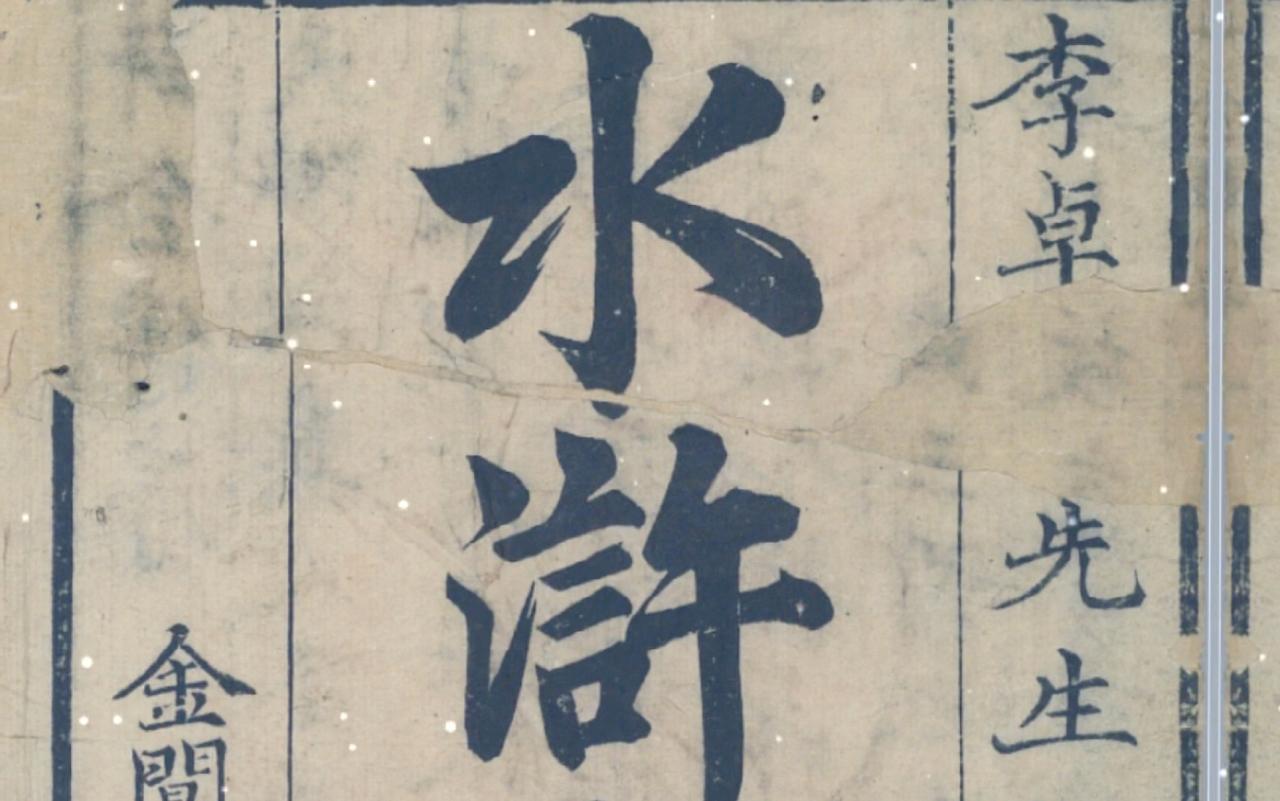 李卓 先生
水滸
金閶